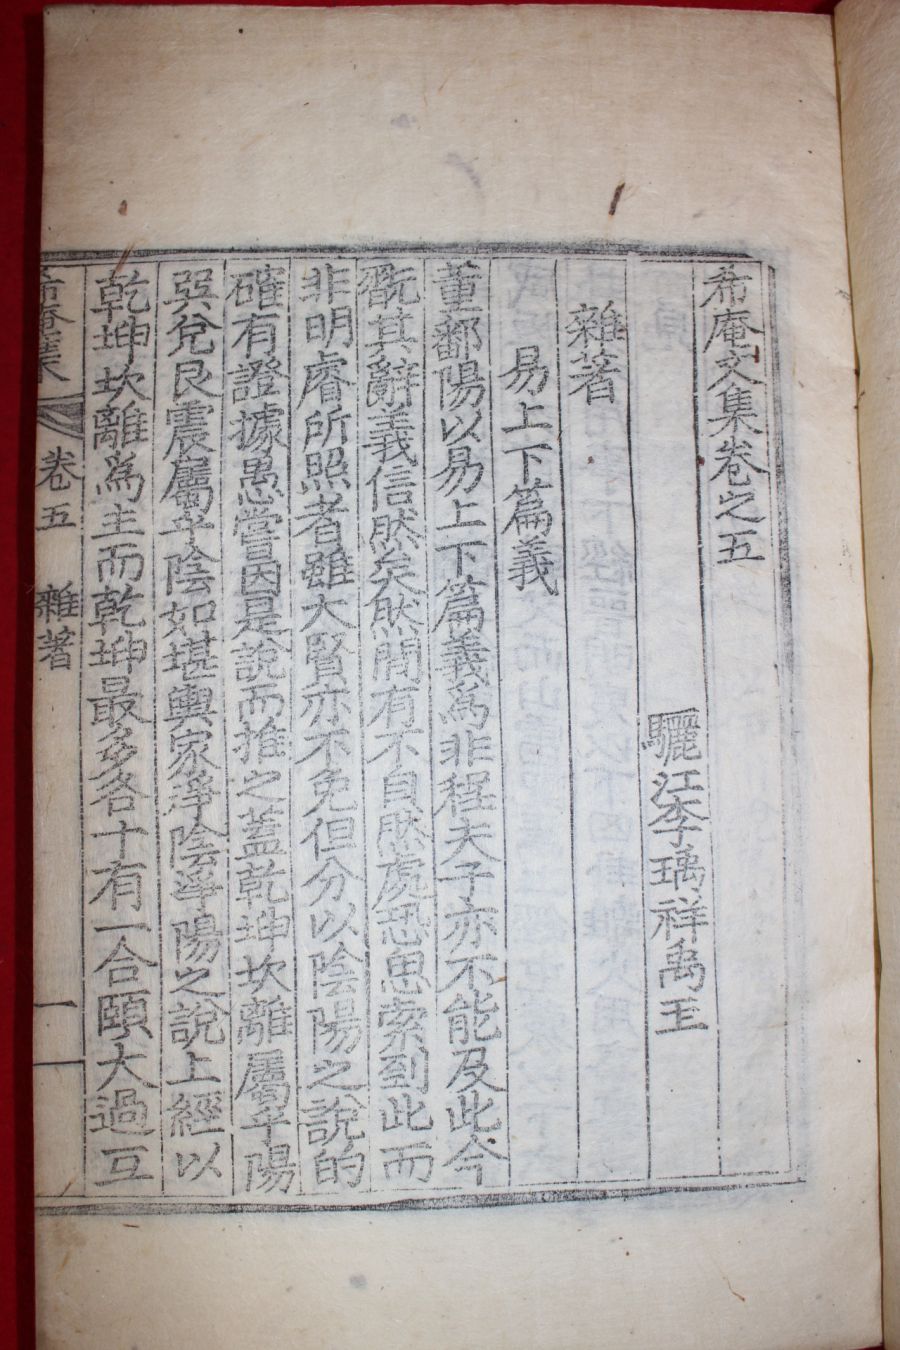 希庵文集卷之五
驪江李瑀祥禹玉
雜著
易上下篇義
董鄱陽以易上下篇義爲非程夫子亦不能及此今
翫其辭義信然矣然間有不自然處恐思索到此而
非明睿所照者雖大賢亦不免但分以陰陽之說的
確有證據愚嘗因是說而推之蓋乾坤坎離屬乎陽
巽兌艮震屬乎陰如堪輿家淨陰淨陽之說上經以
乾坤坎離爲主而乾坤最多各十有一合頤大過互
希庵集 卷五 雜著 一